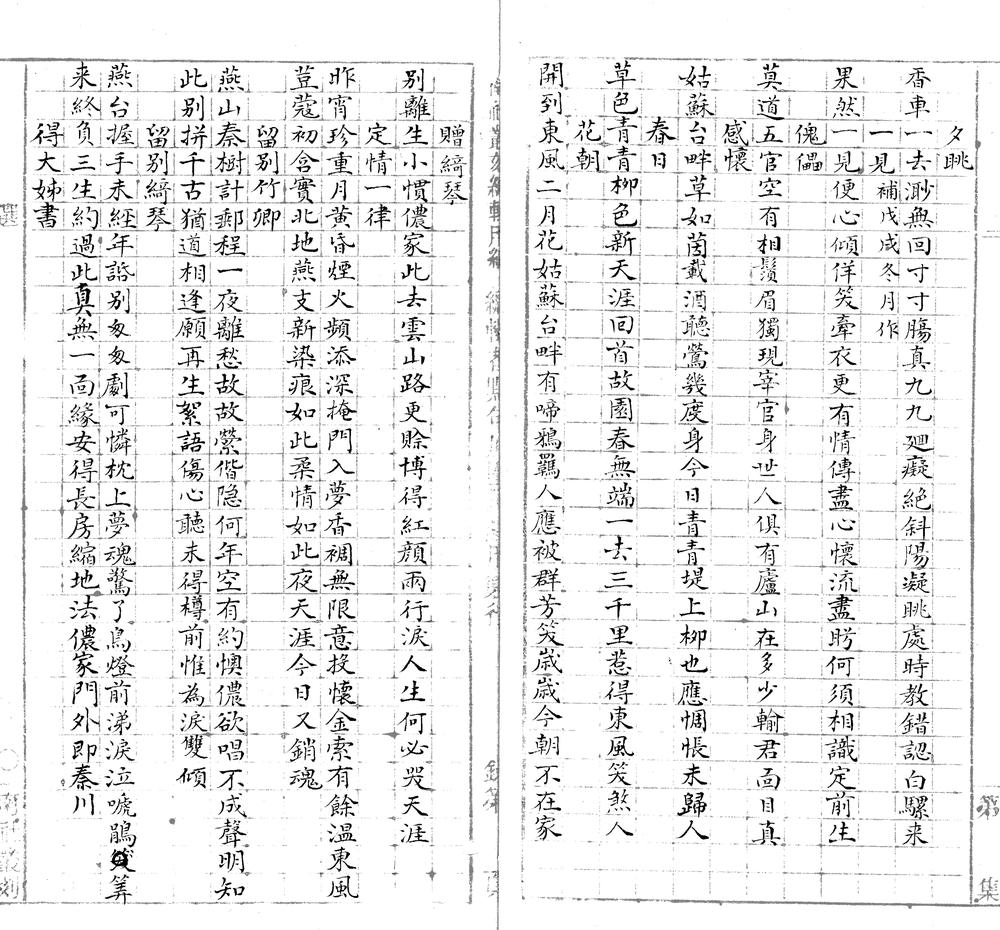 夕眺
香車一去渺無回寸寸腸真九九廻癡絕斜陽凝眺處時教錯認白騾来
一見補戊戌冬月作
果然一見便心傾佯笑牽衣更有情傳盡心懷流盡盻何須相識定前生
傀儡
莫道五官空有相鬚眉獨現宰官身世人俱有廬山在多少輸君面目真
感懷
姑蘇台畔草如茵載酒聽鶯幾度身今日青青堤上柳也應惆悵未歸人
春日
草色青青柳色新天涯回首故園春無端一去三千里惹得東風笑煞人
花朝
開到東風二月花姑蘇台畔有啼鴉羈人應被群芳笑歲歲今朝不在家
贈綺琴
别離生小慣儂家此去雲山路更賒博得紅顏兩行淚人生何必哭天涯
定情一律
昨宵珍重月黃昏煙火頻添深掩門入夢香裯無限意投懷金索有餘温東風
荳蔻初含實北地燕支新染痕如此柔情如此夜天涯今日又銷魂
留别竹卿
燕山秦樹計郵程一夜離愁故故縈偕隐何年空有約懊儂欲唱不成聲明知
此别拼千古猶道相逢願再生絮語傷心聽未得樽前惟為淚雙傾
留别綺琴
燕台握手未經年諮别匆匆劇可憐枕上夢魂驚了鳥燈前涕淚泣唬鵑筭
来終負三生約過此真無一面緣安得長房縮地法儂家門外即秦川
得大姊書
選
集